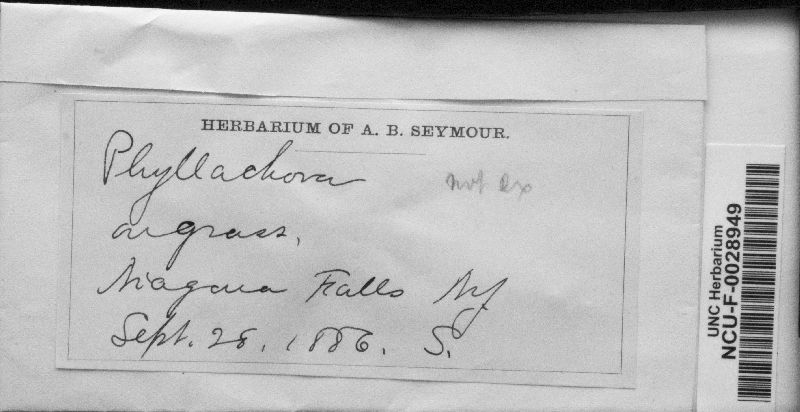 HERBARIUM OF A. B. SEYMOUR.
Phyllachora not ex
on grass,
Niagara Falls NY
Sept. 28, 1886. S.
UNC Herbarium
NCU-F-0028949